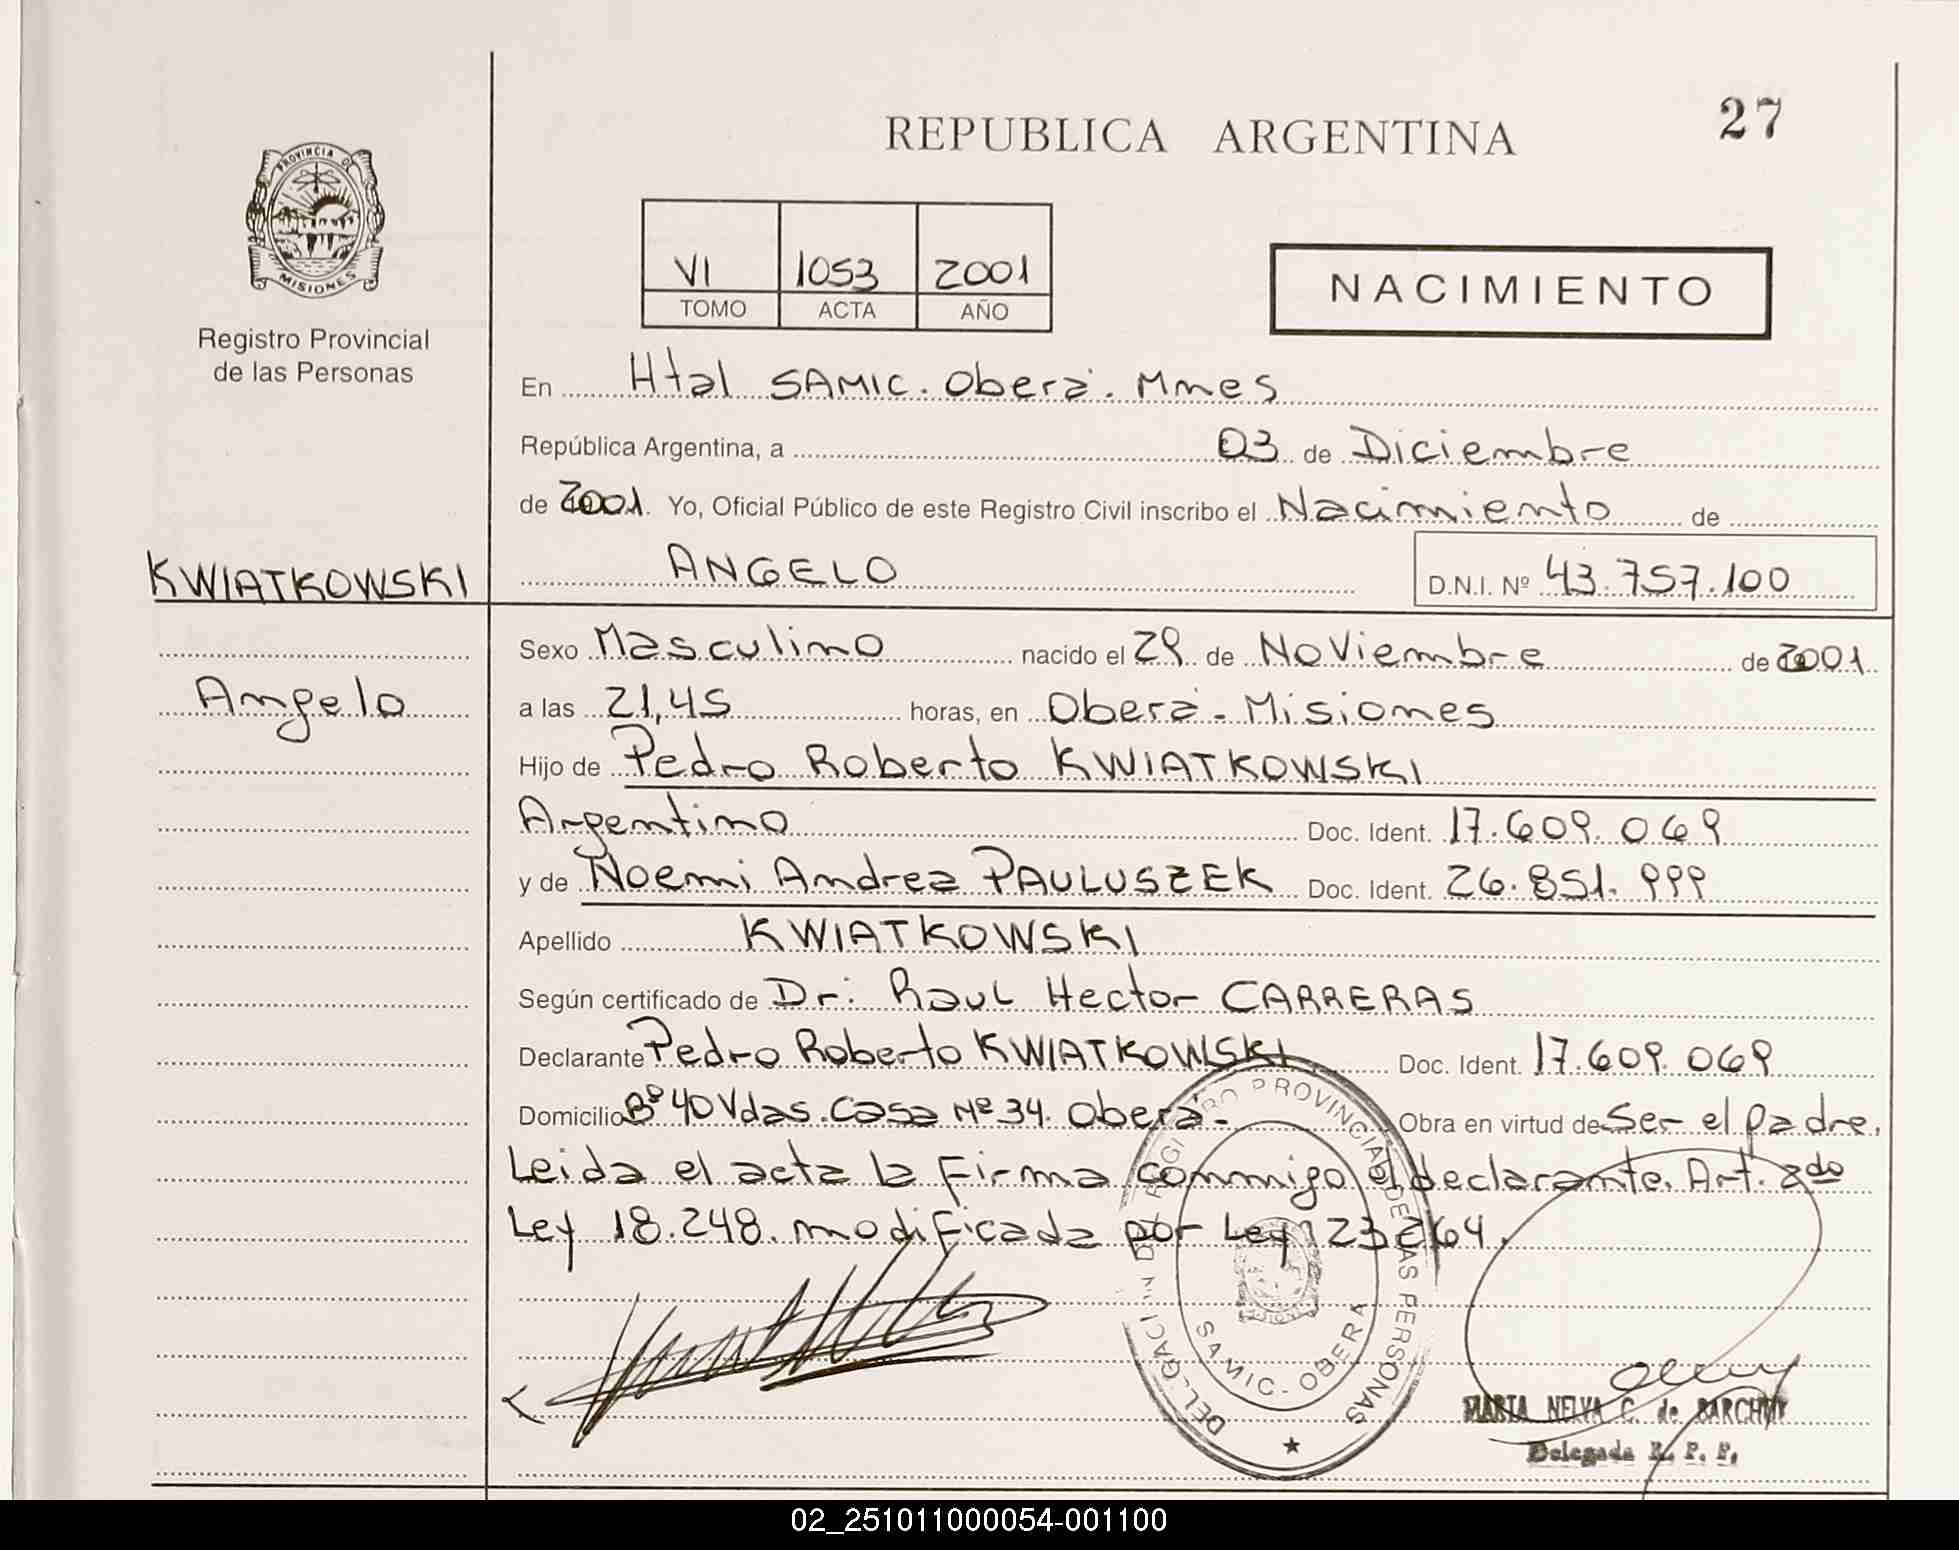 27
REPUBLICA ARGENTINA
PROVINCIA D
MISIONES
Registro Provincial
de las Personas
VI 1053 2001
TOMO ACTA AÑO
NACIMIENTO
En Htal SAMIC. Oberá. Mnes
República Argentina, a 03 de Diciembre
de 2001. Yo, Oficial Público de este Registro Civil inscribo el Nacimiento de
KWIATKOWSKI ANGELO D.N.I. Nº 43.757.100
Sexo Masculino nacido el 29 de Noviembre de 2001
Angelo a las 21,45 horas, en Oberá - Misiones
Hijo de Pedro Roberto KWIATKOWSKI
Argentino Doc. Ident. 17.609.069
y de Noemi Andrea PAULUSZEK Doc. Ident. 26.851.999
Apellido KWIATKOWSKI
Según certificado de Dr: Raul Hector CARRERAS
Declarante Pedro Roberto KWIATKOWSKI Doc. Ident. 17.609.069
Domicilio Bº 40 Vdas. Casa Nº 34. Oberá - Obra en virtud de Ser el padre.
Leida el acta la Firma conmigo el declarante. Art. 2do
Ley 18.248. modificada por Ley 23264.
REGI RO PROVINCIAL DE LAS PERSONAS
SAMIC - OBERA
MARIA NELVA C. de BARCHUK
Delegada R. P. P.
02_251011000054-001100